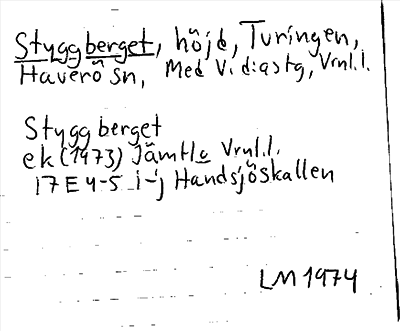 Styggberget, höjd, Turingen,
Haverö sn, Med Vidiastg, Vrnl.l.
Styggberget
ek (1973) Jämtl. Vrnl.l.
17E 4-5 i-j Handsjöskallen
LM 1974